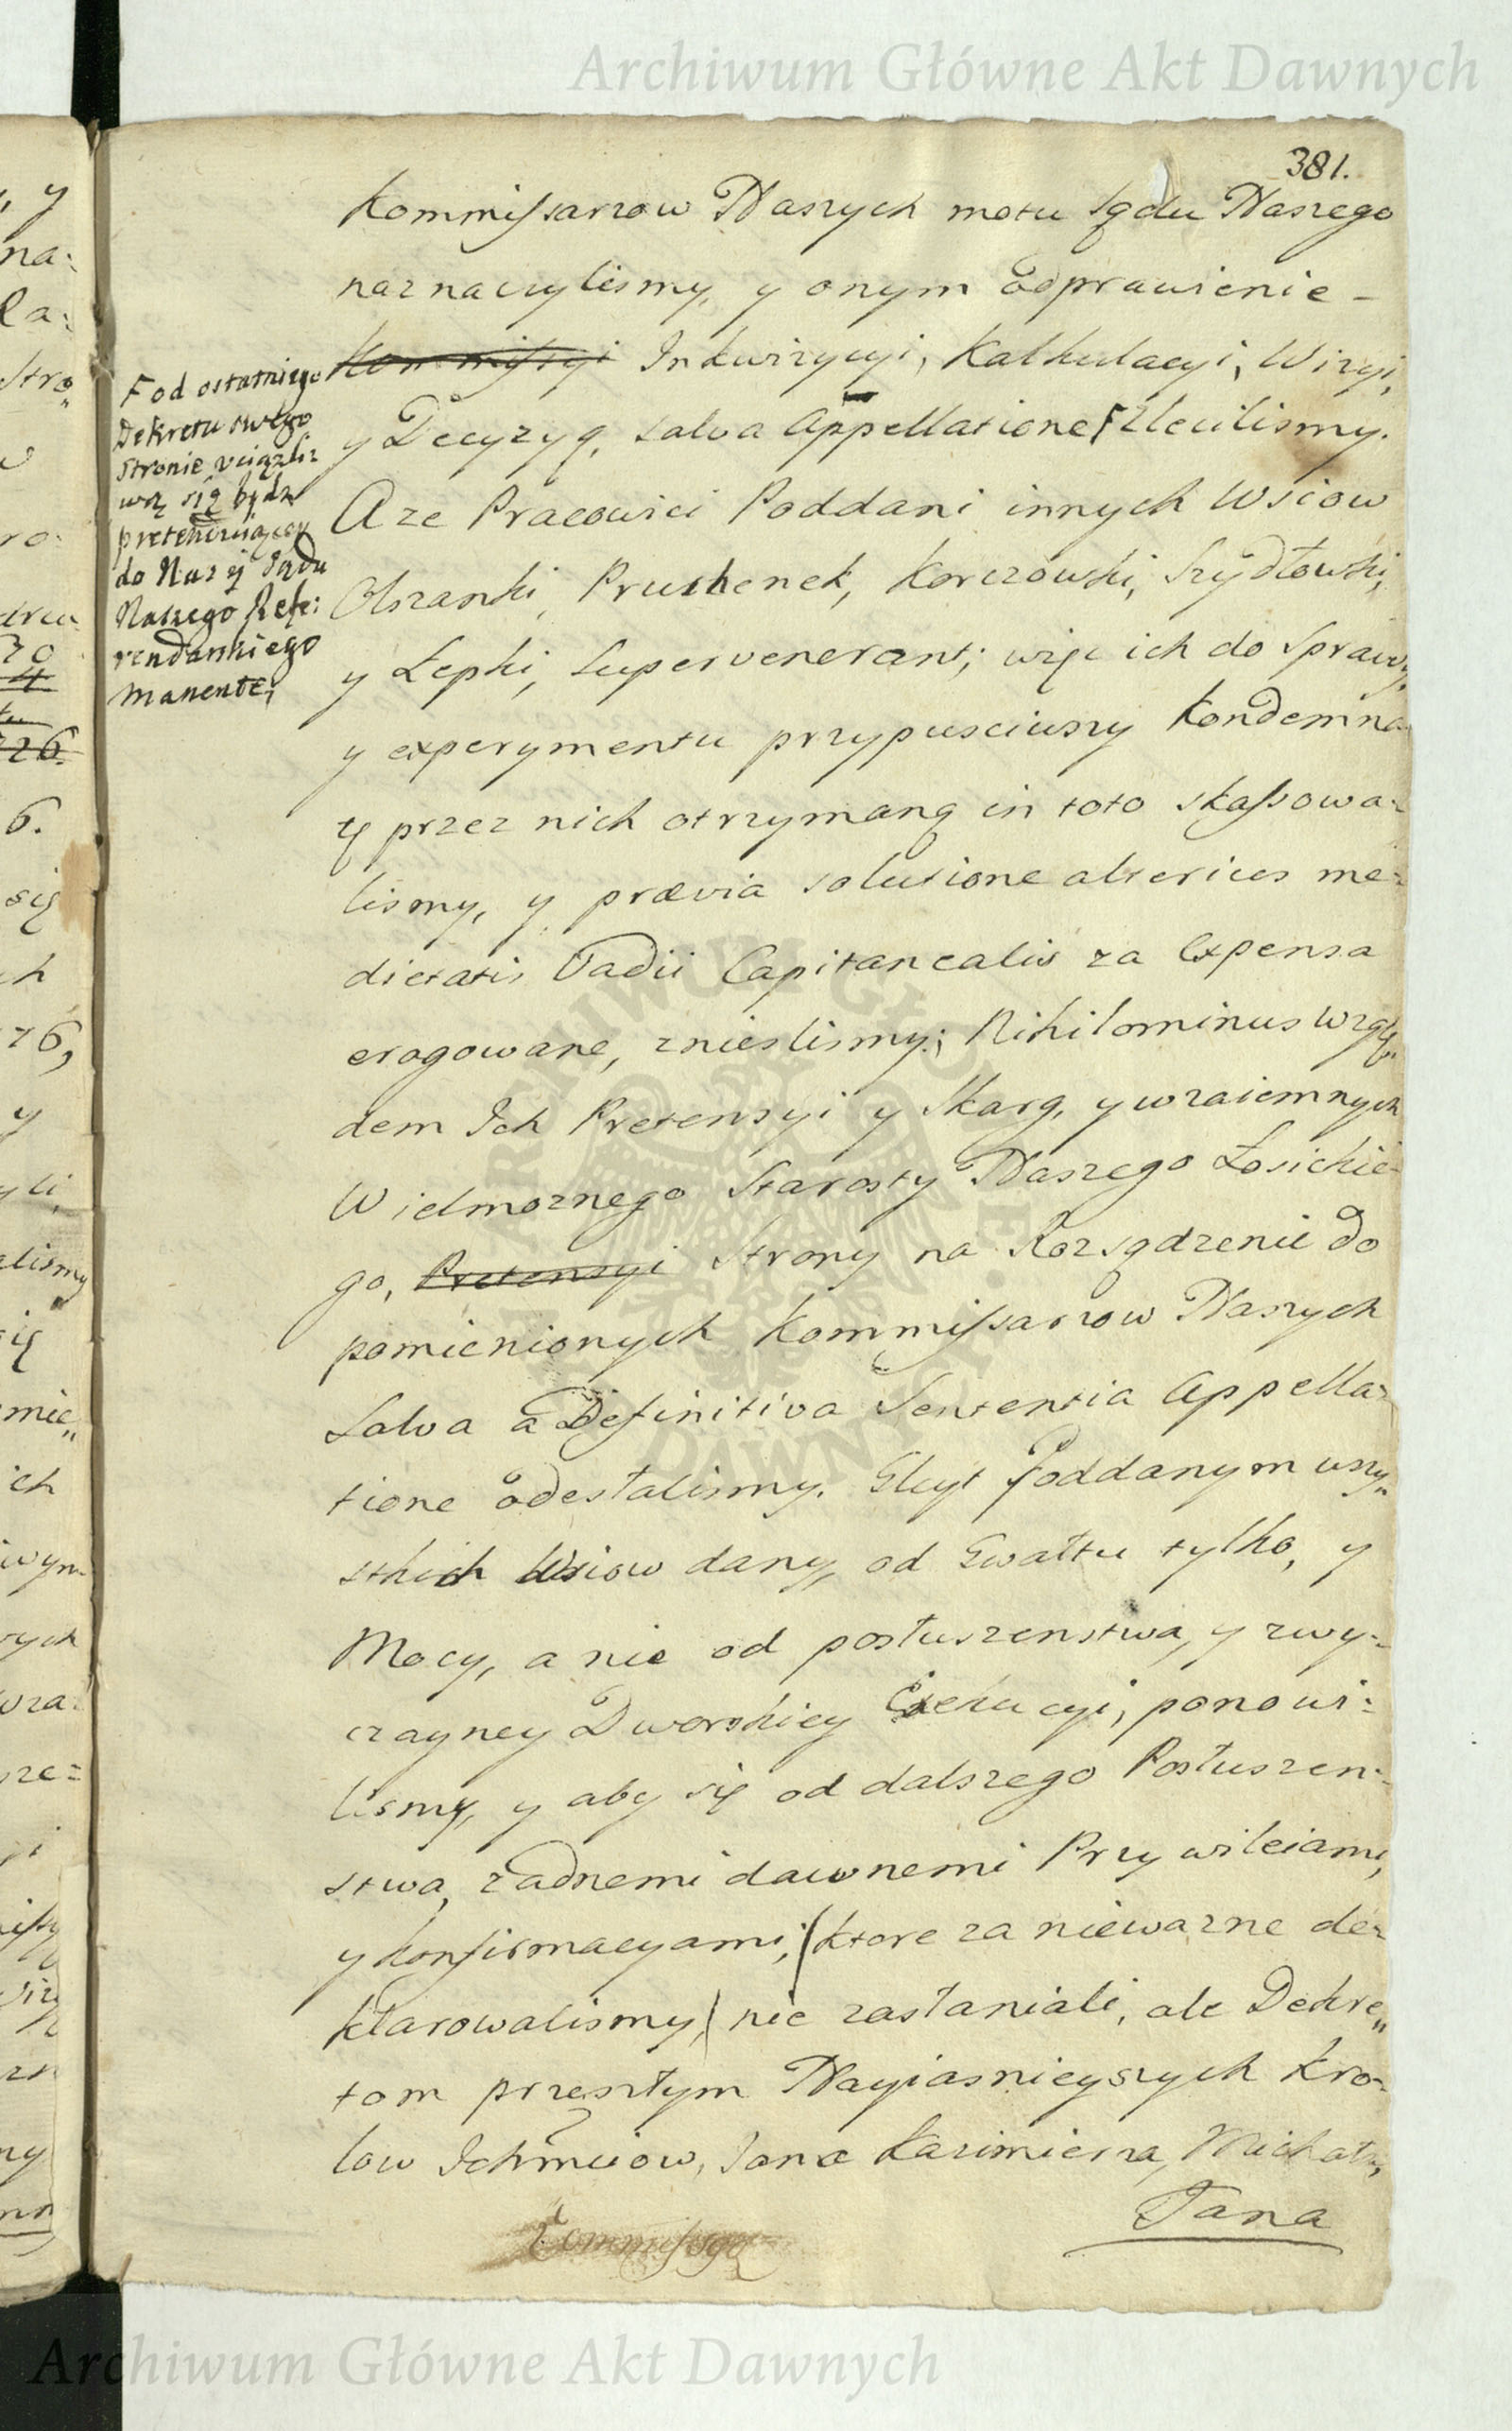 Archiwum Główne Akt Dawnych
381.
Kommissarzow Naszych motu Sądu Naszego
naznaczylismy, y onym odprawienie –
Kommissyi Inkwizycyi, Kalkulacyi, Wizyi,
y Decyzyą, salva Appellatione, F zlecilismy.
A ze Pracowici Poddani innych Wsiow
Olszanki, Prusenek, Korczowki, Szydłowki,
y Łepki, supervenerant; więc ich do Sprawy,
y experymentu przypusciwszy Kondemna
tę przez nich otrzymaną in toto skassowa-
lismy, y prævia solutione alterius me-
dietatis Vadii Capitanealis za Expensa
erogowane, zniesliśmy; Nihilominus wzglę„
dem Ich Pretensyi y Skarg, y wzaiemnych
Wielmoznego Starosty Naszego Łosickie-
go, Pretensyi Strony na Rozsądzenie do
pomienionych Kommissarzow Naszych
Salva a Definitiva Sententia Appella-
tione odesłalismy. Gleyt Poddanym wszy„
stkich Wsiow dany, od Gwałtu tylko, y
Mocy, a nie od posłuszenstwa, y zwy-
czayney Dworskiey Exekucyi, ponowi-
lismy, y aby się od dalszego Posłuszen-
stwa, zadnemi dawnemi Przywileiami,
y konfirmacyami, (ktore za niewazne de-
klarowalismy,) nie zasłaniali, ale Dekre„
tom przeszłym Nayiasnieyszych Kro-
low Ichmciow, Jana Kazimierza, Michała,
Jana
Kommissyą
F od ostatniego
Dekretu swego
Stronie uciązli
wą się bydz
pretenduiącey
do Nas y Sądu
Naszego Refe:
rendarskiego
manente;
Archiwum Główne Akt Dawnych